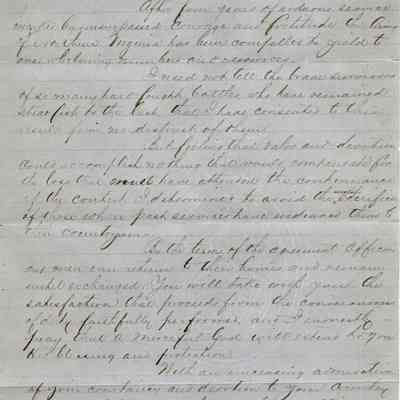 After four years of arduous service
marked by unsurpassed courage and fortitude the Army
of Northern Virginia has been compelled to yield to
overwhelming numbers and resources.
I need not tell the brave survivors
of so many hard fought battles who have remained
steadfast to the last that I have consented to this
result from no distrust of them.
But feeling that valor and devotion
could accomplish nothing that would compensate for
the loss that must have attended the continuance
of the contest I determined to avoid the useless sacrifice
of those whose past services have endeared them to
their countrymen.
By the terms of the agreement Officers
and men can return to their homes and remain
until exchanged. You will take with you the
satisfaction that proceeds from the consciousness
of duty faithfully performed and I earnestly
pray that a merciful God will extend to you
His blessing and protection.
With an increasing admiration
of your constancy and devotion to your Country